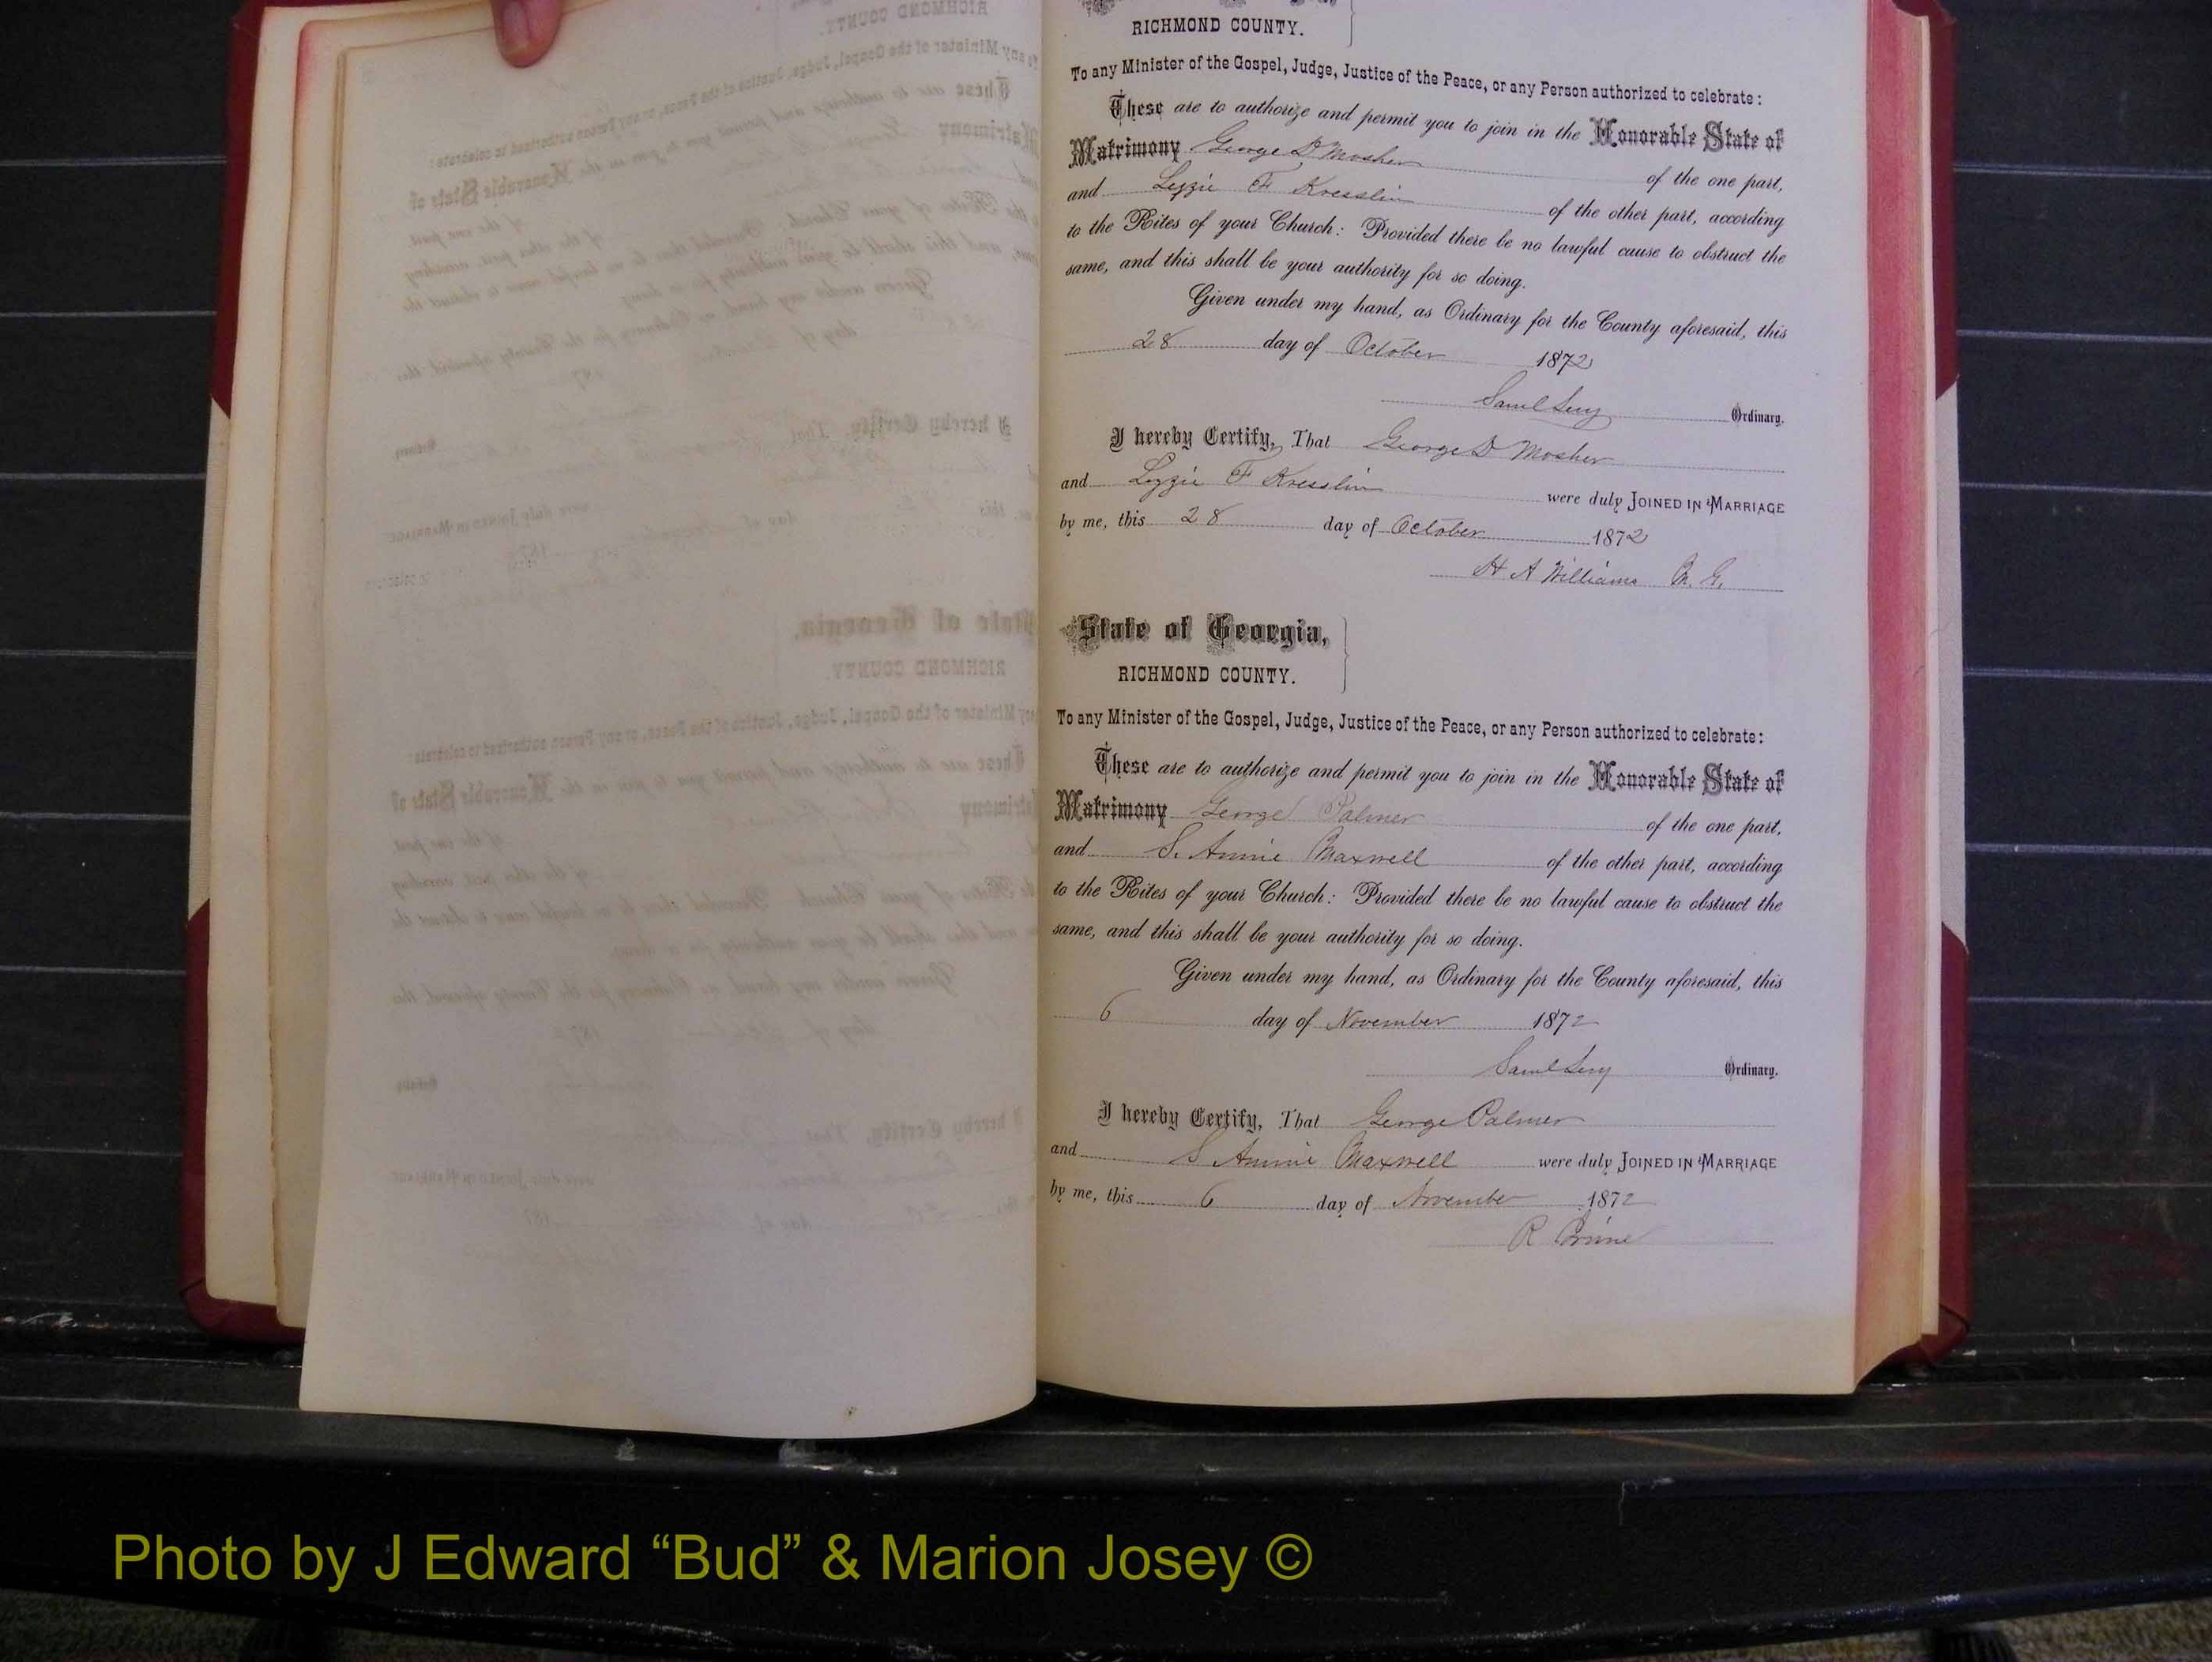 RICHMOND COUNTY.
To any Minister of the Gospel, Judge, Justice of the Peace, or any Person authorized to celebrate:
These are to authorize and permit you to join in the Honorable State of
Matrimony George D Mosher of the one part,
and Lizzie F Kresslin of the other part, according
to the Rites of your Church: Provided there be no lawful cause to obstruct the
same, and this shall be your authority for so doing.
Given under my hand, as Ordinary for the County aforesaid, this
28 day of October 1872
Saml Levy Ordinary.
I hereby Certify, That George D Mosher
and Lizzie F Kresslin were duly JOINED IN MARRIAGE
by me, this 28 day of October 1872
H A Williams M. G.
State of Georgia,
RICHMOND COUNTY.
To any Minister of the Gospel, Judge, Justice of the Peace, or any Person authorized to celebrate:
These are to authorize and permit you to join in the Honorable State of
Matrimony George Palmer of the one part,
and S. Annie Maxwell of the other part, according
to the Rites of your Church: Provided there be no lawful cause to obstruct the
same, and this shall be your authority for so doing.
Given under my hand, as Ordinary for the County aforesaid, this
6 day of November 1872
Saml Levy Ordinary.
I hereby Certify, That George Palmer
and S Annie Maxwell were duly JOINED IN MARRIAGE
by me, this 6 day of November 1872
R
Photo by J Edward “Bud” & Marion Josey ©